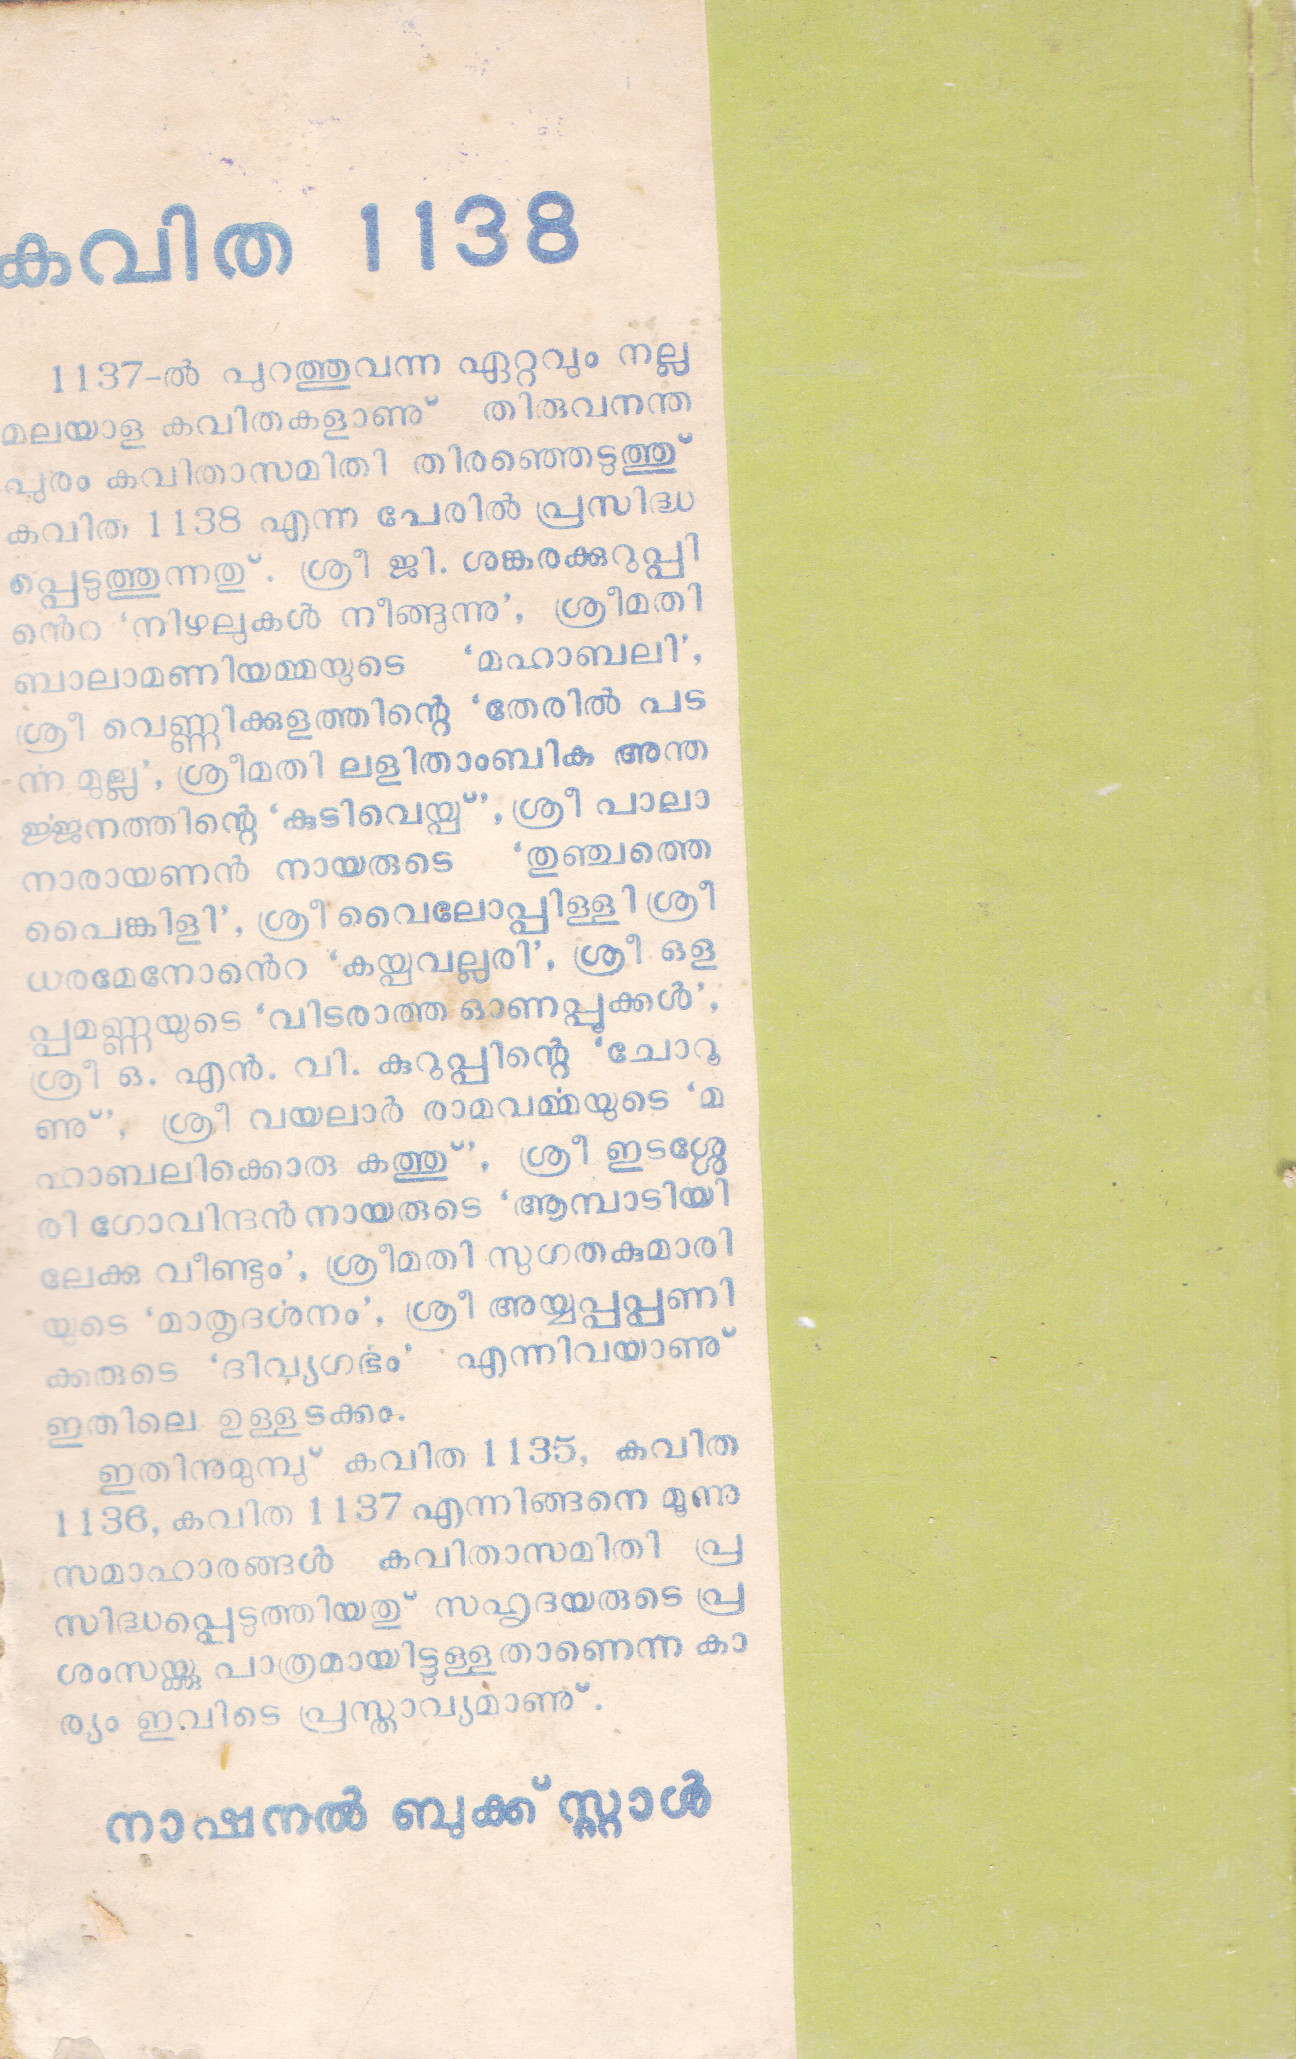 കവിത 1138
1137-ൽ പുറത്തുവന്ന ഏറ്റവും നല്ല
മലയാള കവിതകളാണു് തിരുവനന്ത
പുരം കവിതാസമിതി തിരഞ്ഞെടുത്തു്
കവിത 1138 എന്ന പേരിൽ പ്രസിദ്ധ
പ്പെടുത്തുന്നതു്. ശ്രീ ജി. ശങ്കരക്കുറുപ്പി
ൻെറ ‘നിഴലുകൾ നീങ്ങുന്നു’, ശ്രീമതി
ബാലാമണിയമ്മയുടെ ‘മഹാബലി’,
ശ്രീ വെണ്ണിക്കുളത്തിന്റെ ‘തേരിൽ പട
ൎന്ന മുല്ല’, ശ്രീമതി ലളിതാംബിക അന്ത
ൎജ്ജനത്തിന്റെ ‘കുടിവെയ്പ്’, ശ്രീ പാലാ
നാരായണൻ നായരുടെ ‘തുഞ്ചത്തെ
പൈങ്കിളി’, ശ്രീ വൈലോപ്പിള്ളി ശ്രീ
ധരമേനോൻെറ ‘കയ്പവല്ലരി’, ശ്രീ ഒള
പ്പമണ്ണയുടെ ‘വിടരാത്ത ഓണപ്പൂക്കൾ’,
ശ്രീ ഒ. എൻ. വി. കുറുപ്പിന്റെ ‘ചോറൂ
ണു്’, ശ്രീ വയലാർ രാമവൎമ്മയുടെ ‘മ
ഹാബലിക്കൊരു കത്തു്’, ശ്രീ ഇടശ്ശേ
രി ഗോവിന്ദൻനായരുടെ ‘ആമ്പാടിയി
ലേക്കു വീണ്ടും’, ശ്രീമതി സുഗതകുമാരി
യുടെ ‘മാതൃദൎശനം’, ശ്രീ അയ്യപ്പപ്പണി
ക്കരുടെ ‘ദിവ്യഗൎഭം’ എന്നിവയാണു്
ഇതിലെ ഉള്ളടക്കം.
ഇതിനുമുമ്പു് കവിത 1135, കവിത
1136, കവിത 1137 എന്നിങ്ങനെ മൂന്നു
സമാഹാരങ്ങൾ കവിതാസമിതി പ്ര
സിദ്ധപ്പെടുത്തിയതു് സഹൃദയരുടെ പ്ര
ശംസയ്ക്കു പാത്രമായിട്ടുള്ളതാണെന്ന കാ
ര്യം ഇവിടെ പ്രസ്താവ്യമാണു്.
നാഷനൽ ബുക്ക് സ്റ്റാൾ